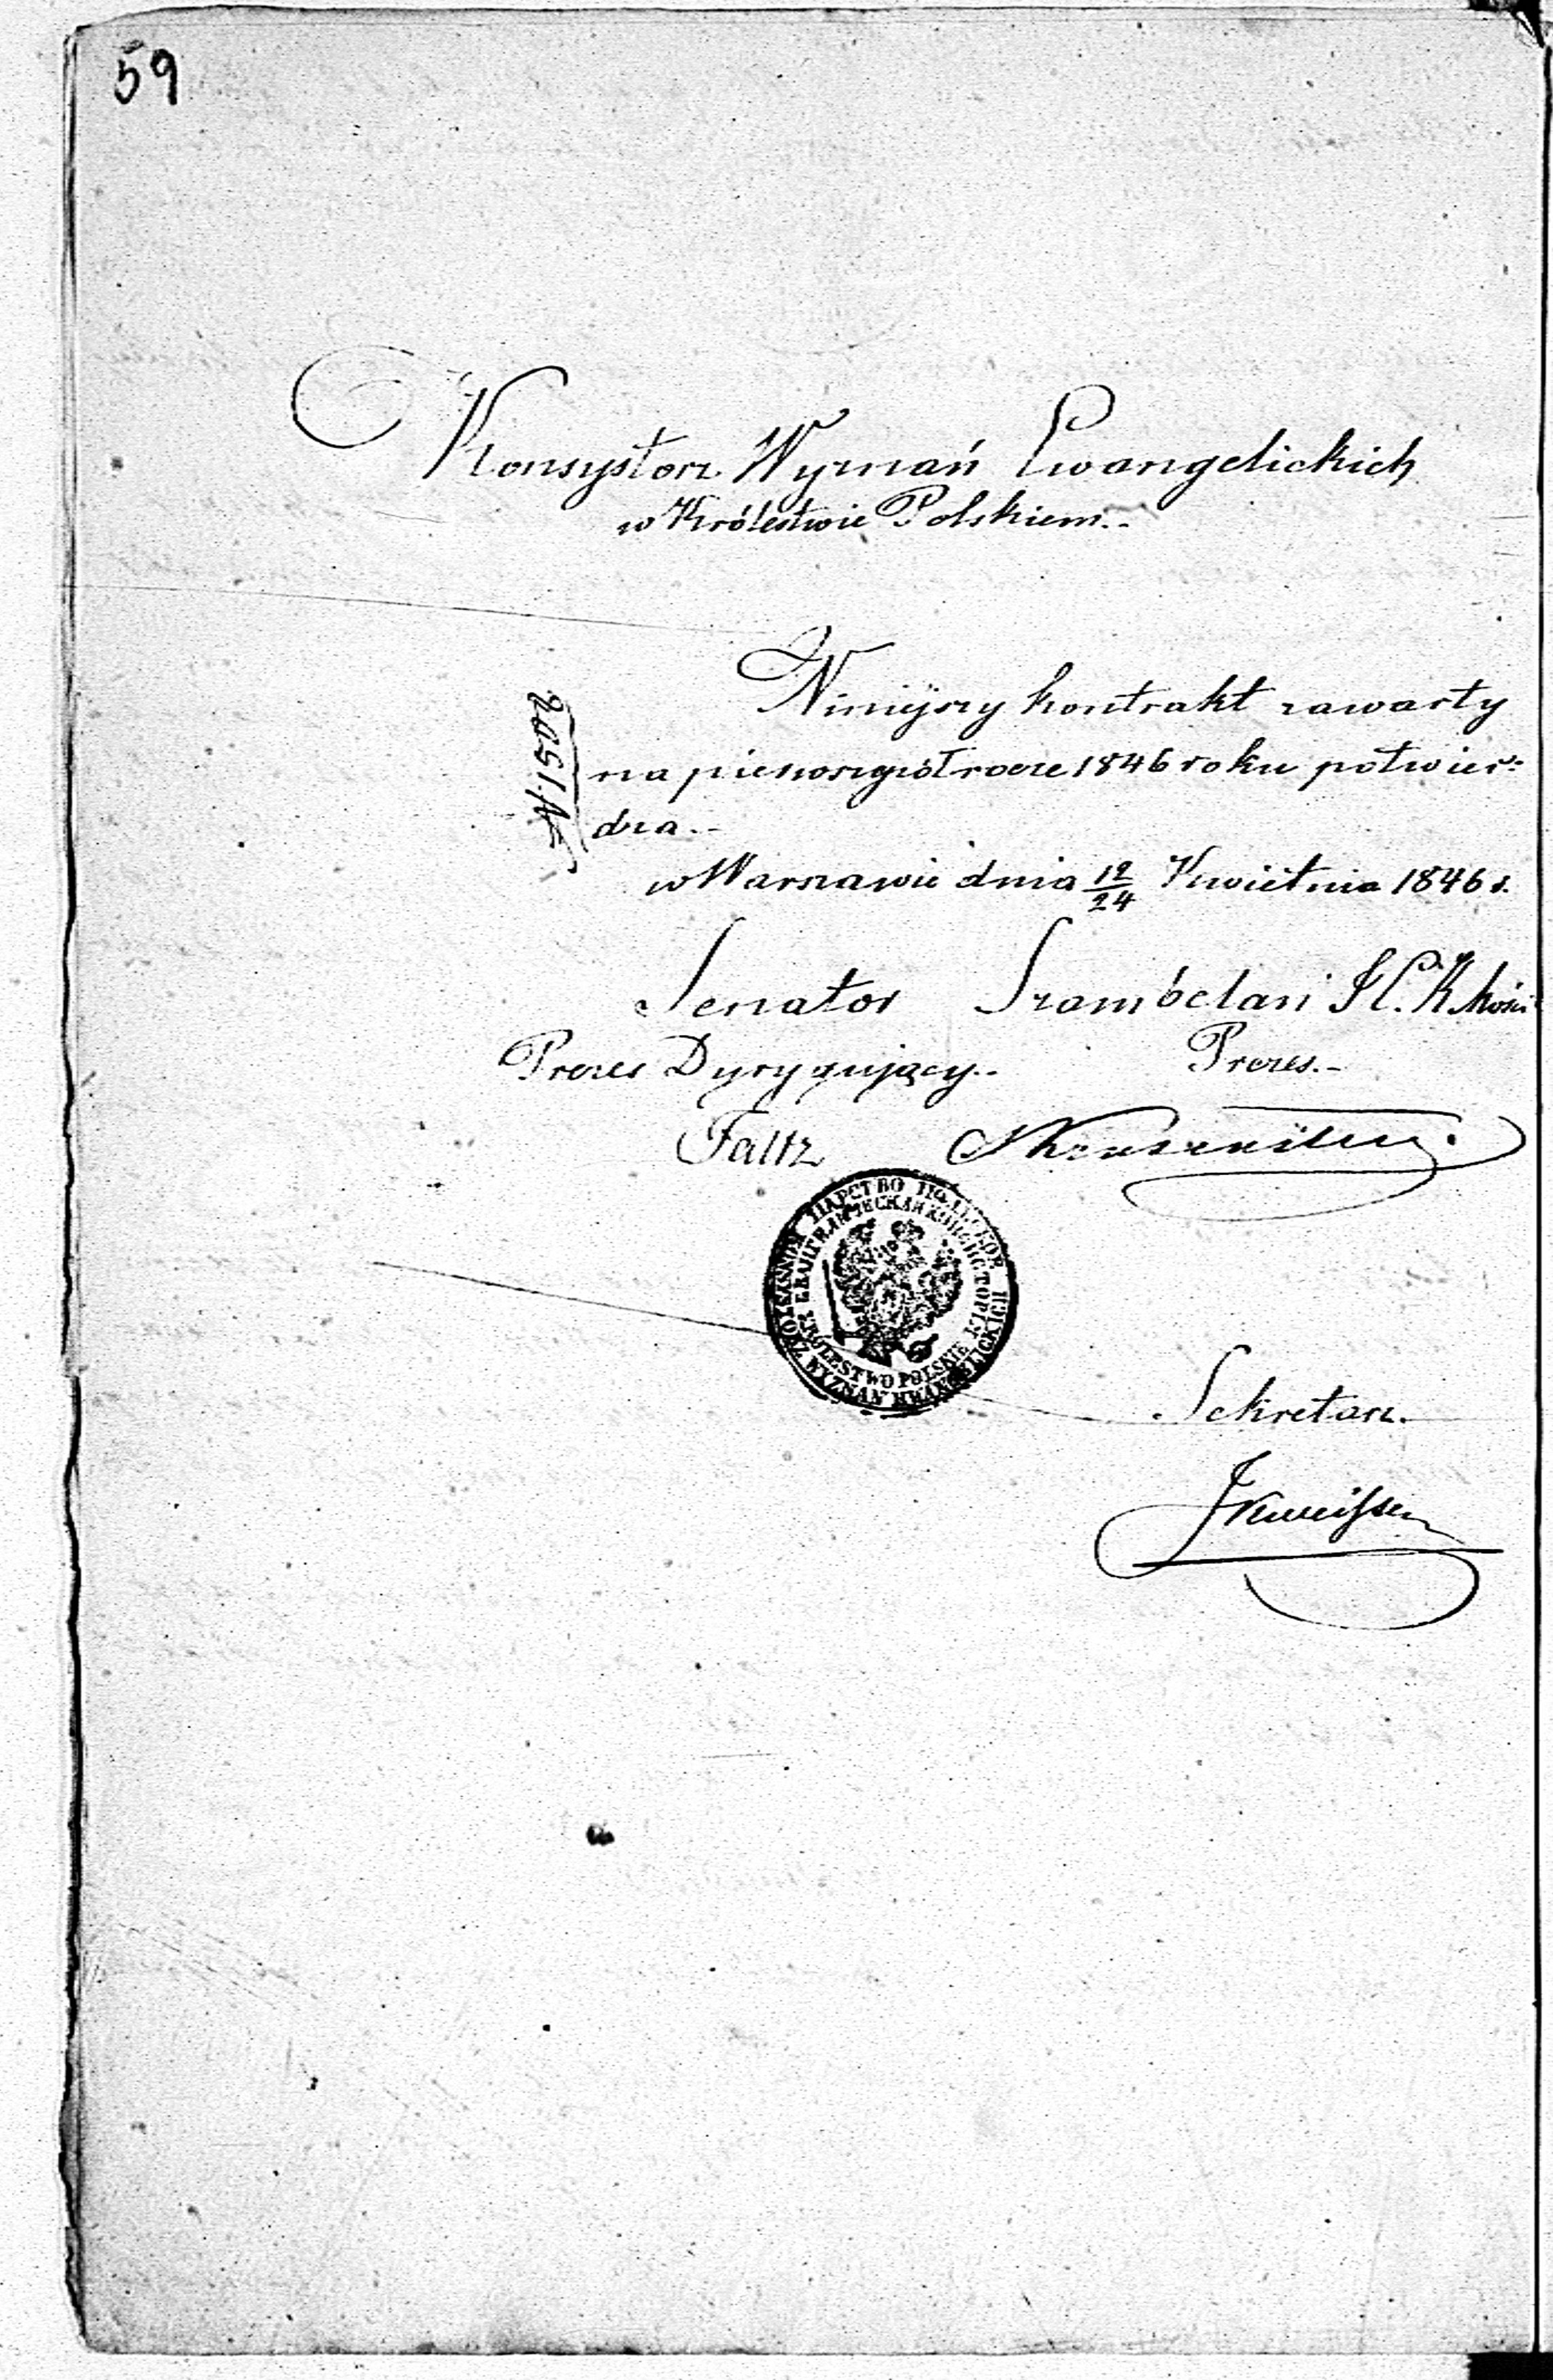 59
Konsystorz Wyznań Ewangelickich
w Królestwie Polskiem.-
Niniejszy kontrakt zawarty
N. 1502
na pierwsze półrocze 1846 roku potwier-
dza.-
w Warszawie dnia 12/24 Kwietnia 1846 r.
Senator Szambelan J. C. K. Mości
Prezes Dyrygujący.- Prezes.-
Faltz
ЦАРСТВО ПОЛЬСКОЕ
ЕВАНГЕЛИЧЕСКАЯ КОНСИСТОРІЯ
KRÓLESTWO POLSKIE
KONSYSTORZ WYZNAŃ EWANGELICKICH
Sekretarz.